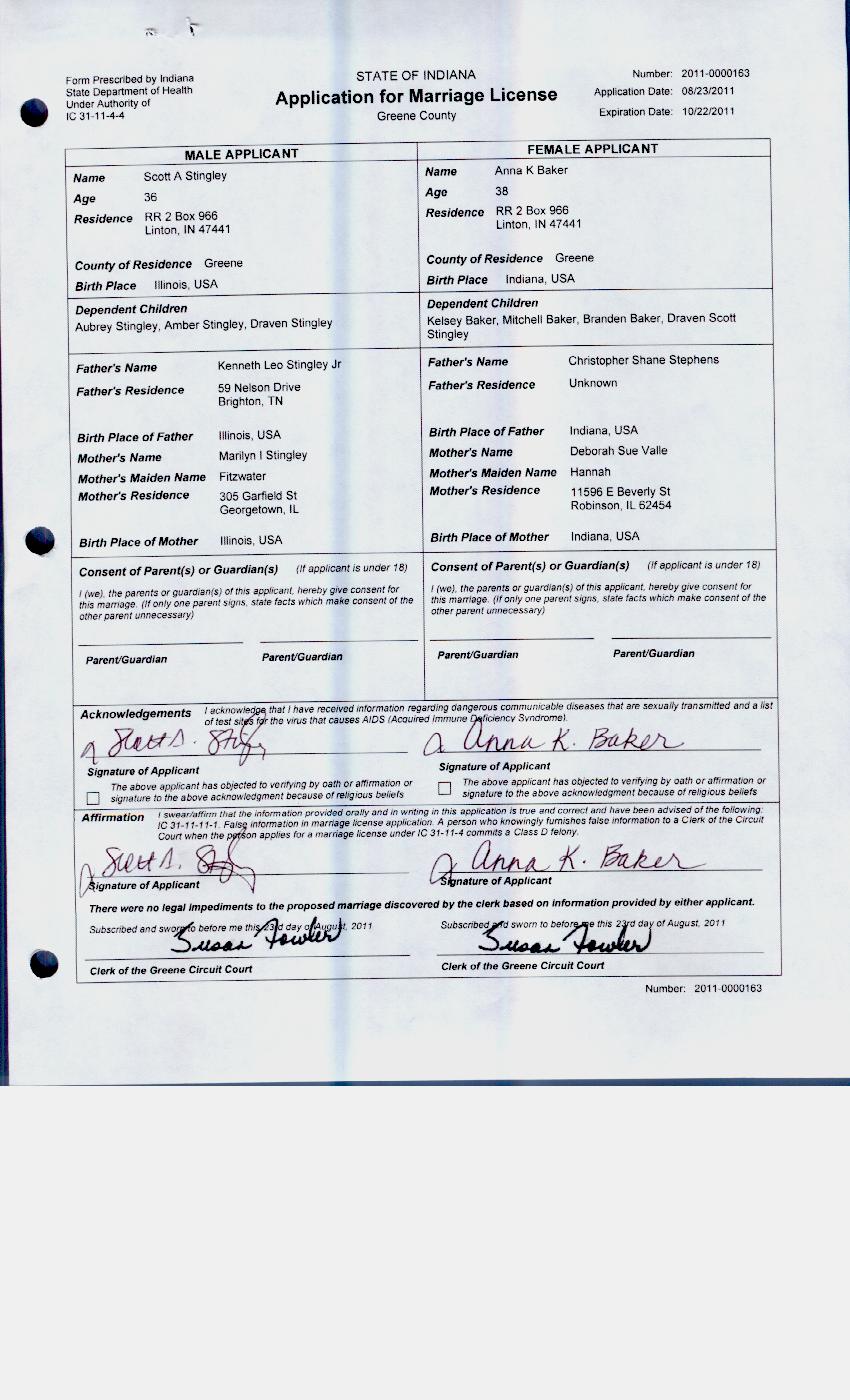 Form Prescribed by Indiana
State Department of Health
Under Authority of
IC 31-11-4-4
STATE OF INDIANA
Application for Marriage License
Greene County
Number: 2011-0000163
Application Date: 08/23/2011
Expiration Date: 10/22/2011
MALE APPLICANT
Name Scott A Stingley
Age 36
Residence RR 2 Box 966
Linton, IN 47441
County of Residence Greene
Birth Place Illinois, USA
Dependent Children
Aubrey Stingley, Amber Stingley, Draven Stingley
Father's Name Kenneth Leo Stingley Jr
Father's Residence 59 Nelson Drive
Brighton, TN
Birth Place of Father Illinois, USA
Mother's Name Marilyn I Stingley
Mother's Maiden Name Fitzwater
Mother's Residence 305 Garfield St
Georgetown, IL
Birth Place of Mother Illinois, USA
Consent of Parent(s) or Guardian(s) (If applicant is under 18)
I (we), the parents or guardian(s) of this applicant, hereby give consent for
this marriage. (If only one parent signs, state facts which make consent of the
other parent unnecessary)
Parent/Guardian Parent/Guardian
FEMALE APPLICANT
Name Anna K Baker
Age 38
Residence RR 2 Box 966
Linton, IN 47441
County of Residence Greene
Birth Place Indiana, USA
Dependent Children
Kelsey Baker, Mitchell Baker, Branden Baker, Draven Scott
Stingley
Father's Name Christopher Shane Stephens
Father's Residence Unknown
Birth Place of Father Indiana, USA
Mother's Name Deborah Sue Valle
Mother's Maiden Name Hannah
Mother's Residence 11596 E Beverly St
Robinson, IL 62454
Birth Place of Mother Indiana, USA
Consent of Parent(s) or Guardian(s) (If applicant is under 18)
I (we), the parents or guardian(s) of this applicant, hereby give consent for
this marriage. (If only one parent signs, state facts which make consent of the
other parent unnecessary)
Parent/Guardian Parent/Guardian
Acknowledgements I acknowledge that I have received information regarding dangerous communicable diseases that are sexually transmitted and a list
of test sites for the virus that causes AIDS (Acquired Immune Deficiency Syndrome).
Scott A. Anna K. Baker
Signature of Applicant Signature of Applicant
The above applicant has objected to verifying by oath or affirmation or
signature to the above acknowledgment because of religious beliefs
The above applicant has objected to verifying by oath or affirmation or
signature to the above acknowledgment because of religious beliefs
Affirmation I swear/affirm that the information provided orally and in writing in this application is true and correct and have been advised of the following:
IC 31-11-11-1. False information in marriage license application. A person who knowingly furnishes false information to a Clerk of the Circuit
Court when the person applies for a marriage license under IC 31-11-4 commits a Class D felony.
Scott A. Anna K. Baker
Signature of Applicant Signature of Applicant
There were no legal impediments to the proposed marriage discovered by the clerk based on information provided by either applicant.
Subscribed and sworn to before me this 23rd day of August, 2011 Subscribed and sworn to before me this 23rd day of August, 2011
Susan Fowler Susan Fowler
Clerk of the Greene Circuit Court Clerk of the Greene Circuit Court
Number: 2011-0000163